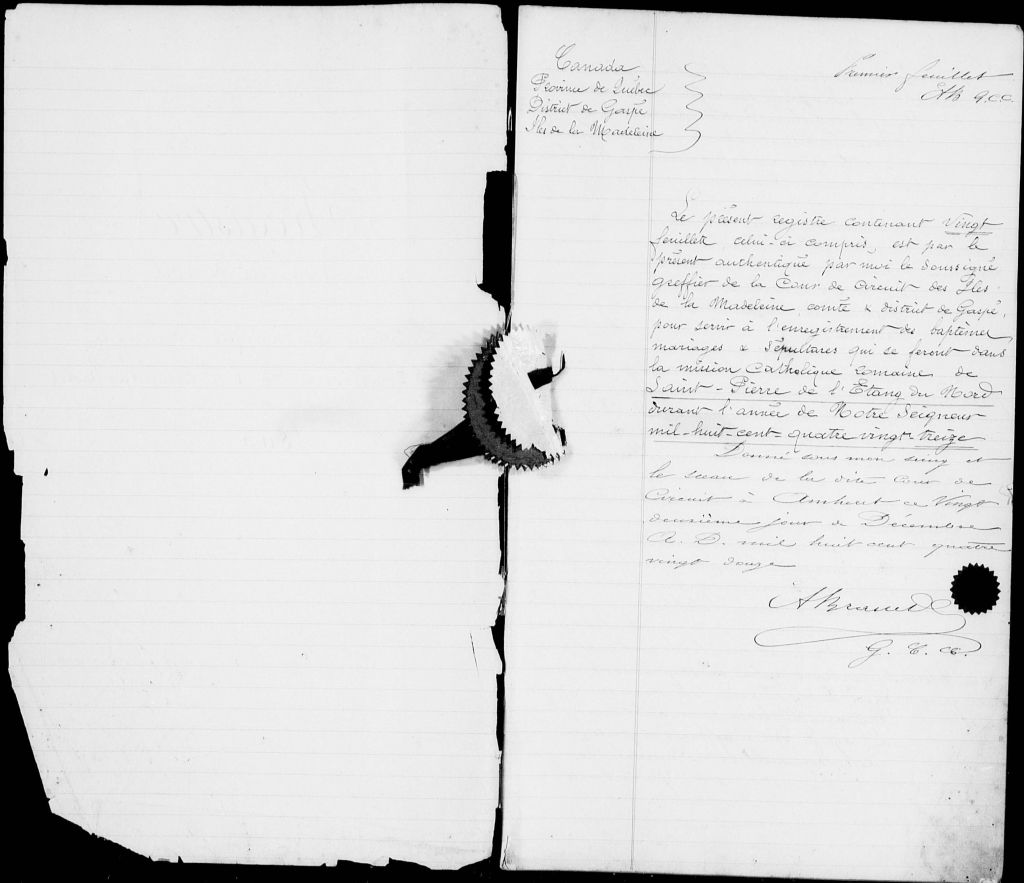 Canada
Province de Québec
District de Gaspé
Iles de la Madeleine
Premier feuillet
AB G.C.C.
Le présent registre contenant vingt
feuillets, celui-ci compris, est par le
présent authentiqué par moi le soussigné
greffier de la Cour de Circuit des Iles
de la Madeleine, comté & district de Gaspé,
pour servir à l'enregistrement des baptêmes
mariages & sépultures qui se feront dans
la mission Catholique romaine de
Saint-Pierre de l'Etang du Nord
durant l'année de Notre Seigneur
mil-huit-cent-quatre vingt-treize
Donné sous mon seing et
le sceau de la dite Cour de
Circuit à Amherst ce Vingt
deuxième jour de Décembre
A. D. mil huit cent quatre
vingt douze
G. C. C.